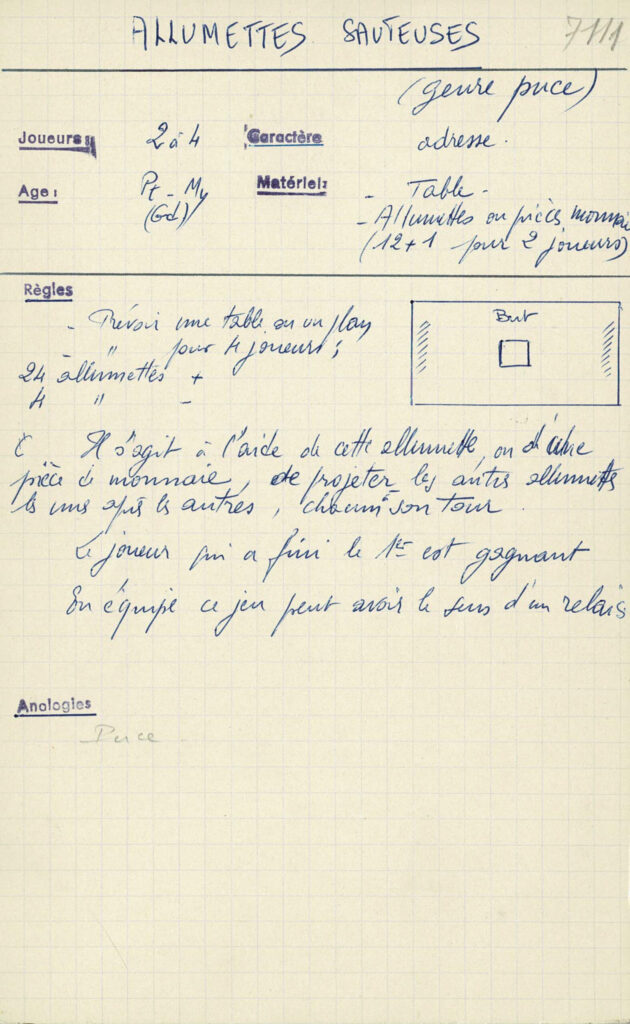 ALLUMETTES SAUTEUSES 7111
(genre puce)
Joueurs: 2 à 4 Caractère adresse.
Age: Pt - My Matériel: - Table -
(Gd) - Allumettes ou pièces monnaie
(12+1 pour 2 joueurs)
Règles
- Prévoir une table ou un plan
- " pour 4 joueurs ;
24 allumettes +
4 " -
But
Il s'agit à l'aide de cette allumette, ou d'une
pièce de monnaie, de projeter les autres allumettes
les unes après les autres, chacun son tour.
Le joueur qui a fini le 1er est gagnant
En équipe ce jeu peut avoir le sens d'un relais
Analogies
Puce